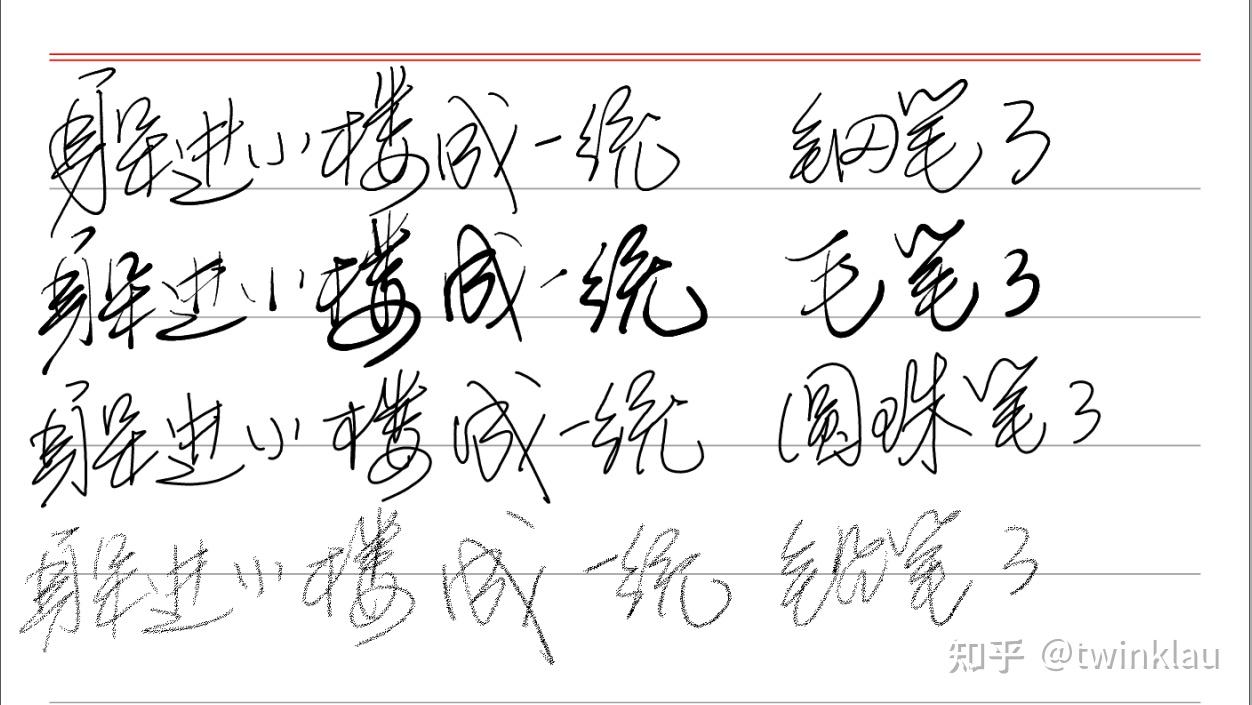 躲进小楼成一统 钢笔了
躲进小楼成一统 毛笔了
躲进小楼成一统 圆珠笔了
躲进小楼成一统 铅笔了
知乎 @twinklau